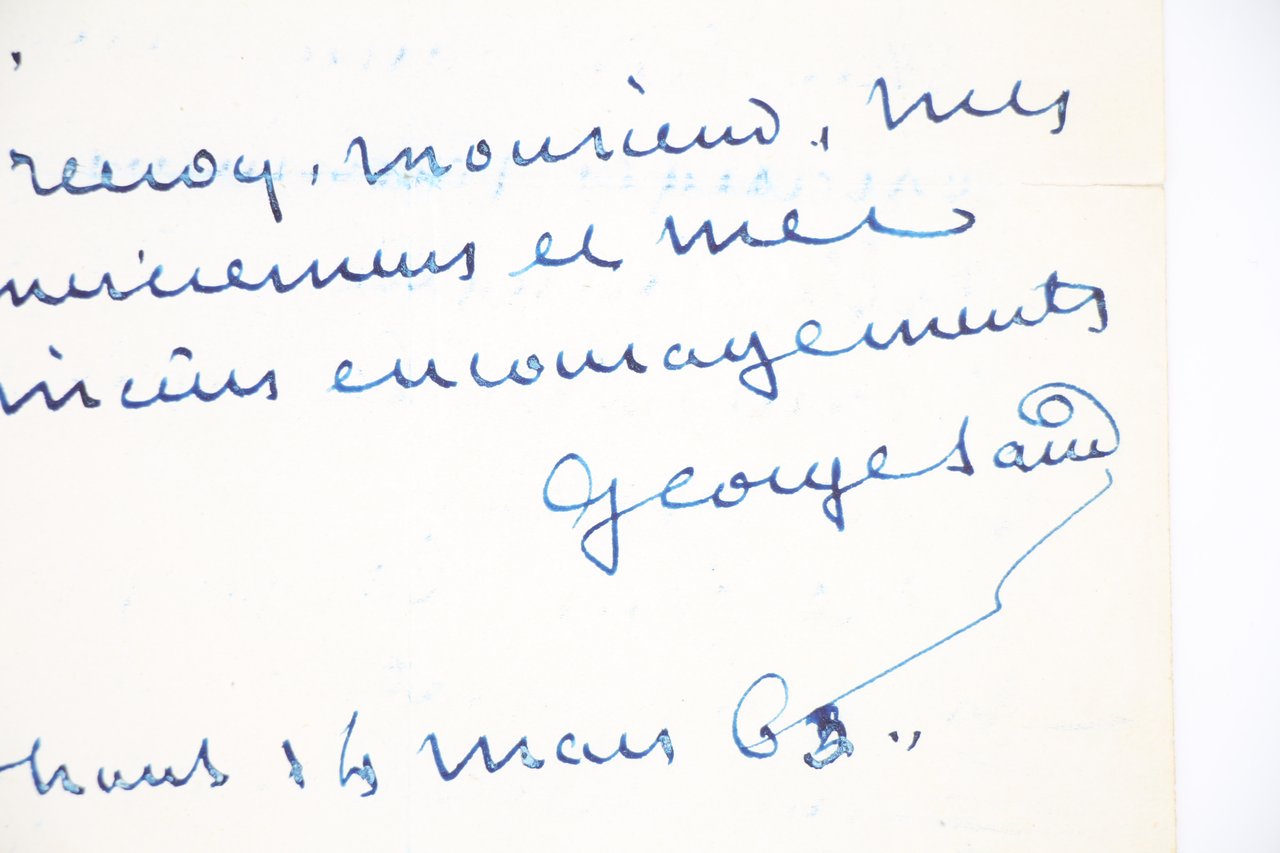 recevoy, monsieur, mes
merciemens et mes
sincères encouragements
George Sand
Nohant 14 mars 63